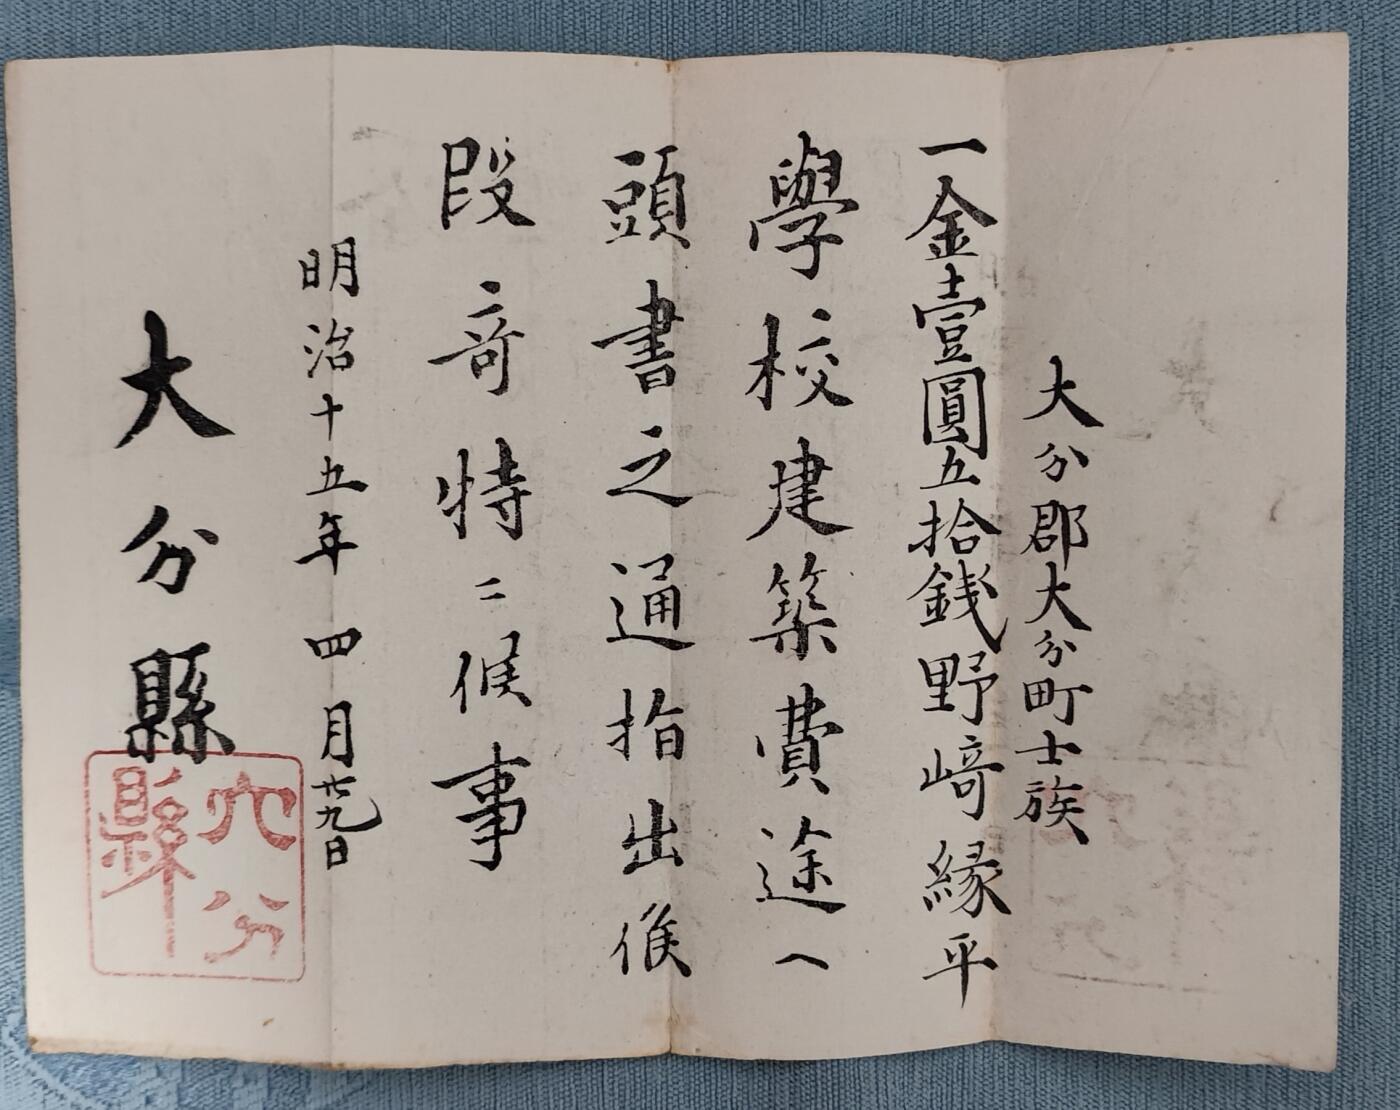 大分郡大分町士族
一金壹圓五拾銭野﨑縁平
學校建築費途へ
頭書之通指出候
段竒特ニ候事
明治十五年四月廿九日
大分縣
大分
縣